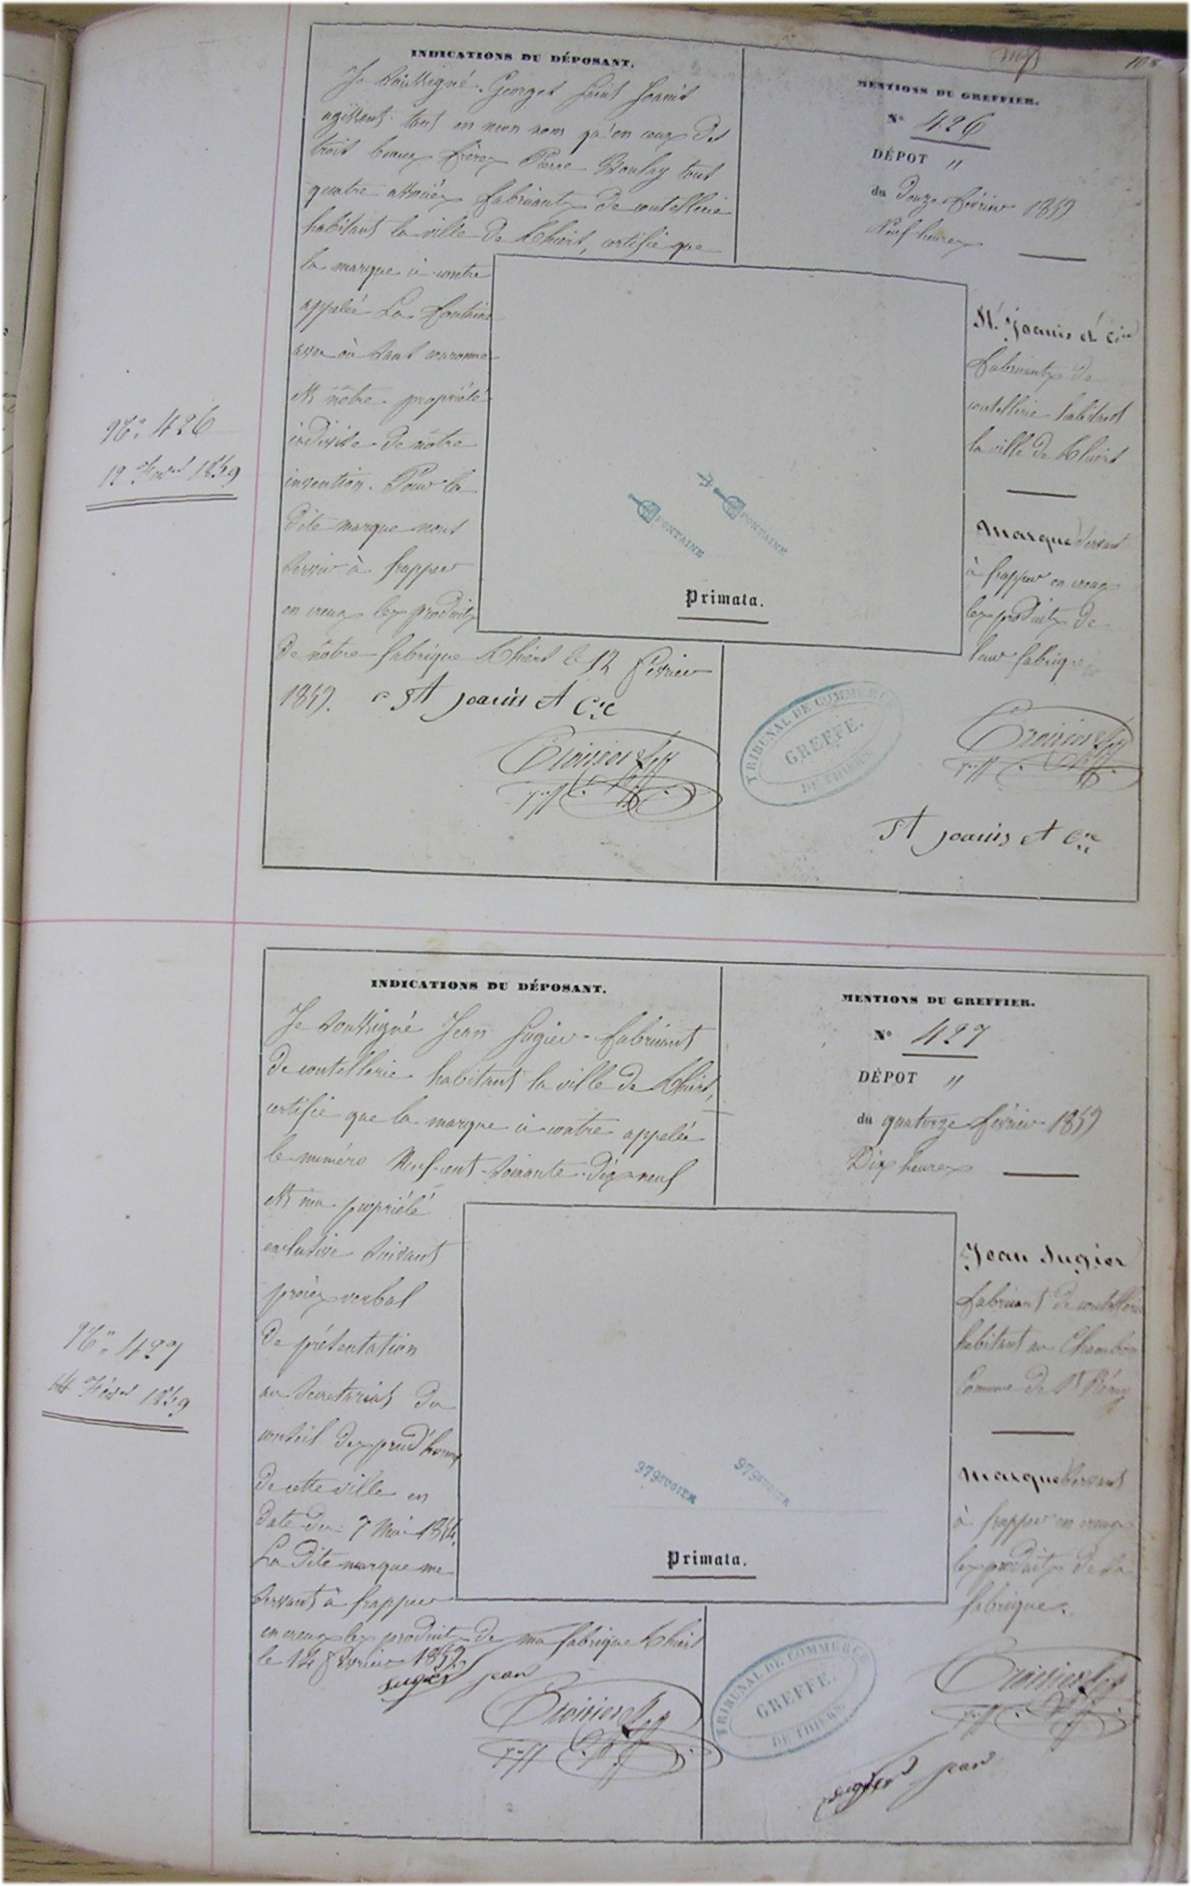 108
N° 426
12 Fév. 1859
INDICATIONS DU DÉPOSANT.
Je soussigné Georges Saint Joanis
agissant tant en mon nom qu'en ceux des
trois beaux frères Pierre Boulay tout
quatre associés fabricants de coutellerie
habitant la ville de Thiers, certifie que
la marque ci contre
appelée La Fontaine
avec ou sans couronne
est nôtre propriété
indivise de nôtre
invention. Pour la
dite marque nous
servir à frapper
en creux les produits
de nôtre fabrique Thiers le 12 février
1859. St Joanis et Cie
MENTIONS DU GREFFIER.
N° 426
DÉPOT "
du Douze février 1859
Neuf heures
St. Joanis et Cie
fabricants de
coutellerie habitant
la ville de Thiers
Marque servant
à frapper en creux
les produits de
leur fabrique
FONTAINE
FONTAINE
Primata.
TRIBUNAL DE COMMERCE
GREFFE.
DE THIERS
St Joanis et Cie
N° 427
14 Févr 1859
INDICATIONS DU DÉPOSANT.
Je soussigné Jean Sugier fabricant
de coutellerie habitant la ville de Thiers,
certifie que la marque ci-contre appelée
le numéro Neuf-cent-soixante-dix-neuf
est ma propriété
exclusive suivant
procès verbal
de présentation
au secrétariat du
conseil des prud'hommes
de cette ville en
date du 7 Mai
La dite marque me
servant à frapper
en creux les produits de ma fabrique Thiers
le 14 février 1859.
sugier jean
MENTIONS DU GREFFIER.
N° 427
DÉPOT "
du quatorze février 1859
Dix heures
Jean Sugier
fabricant de coutellerie
habitant au Chambon
Commune de St Rémy
Marque servant
à frapper en creux
les produits de sa
fabrique.
979
979
Primata.
TRIBUNAL DE COMMERCE
GREFFE.
DE THIERS
sugier jean